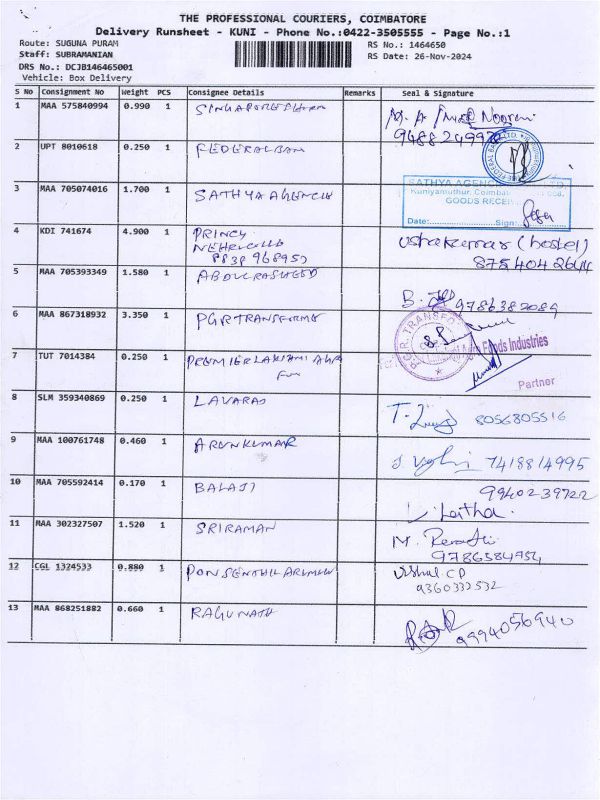 THE PROFESSIONAL COURIERS, COIMBATORE
Delivery Runsheet - KUNI - Phone No.:0422-3505555 - Page No.:1
Route: SUGUNA PURAM RS No.: 1464650
Staff: SUBRAMANIAN RS Date: 26-Nov-2024
DRS No.: DCJB146465001
Vehicle: Box Delivery
S No Consignment No Weight PCS Consignee Details Remarks Seal & Signature
1 MAA 575840994 0.990 1
2 UPT 8010618 0.250 1 FEDERALBAN
3 MAA 705074016 1.700 1 SATHYA AGENCIE
SATHYA AGENC LTD.
Kuniyamuthur, Coimbat
GOODS RECEI
Date: Sign:
4 KDI 741674 4.900 1 PRINCY ushakumar (hostel)
NEHRUCOLLG 8754042644
8838968953
5 MAA 705393349 1.580 1 ABDULRASHEED
B. 9786382089
6 MAA 867318932 3.350 1 PGRTRANSFORMS
P.G.R. TRANSFO
Foods Industries
7 TUT 7014384 0.250 1 PREMIERLAKSHMI AGRO
Partner
8 SLM 359340869 0.250 1 LAVARAJ
8056805516
9 MAA 100761748 0.460 1 ARUNKUMAR
7418814995
10 MAA 705592414 0.170 1 BALAJI 9940239722
Latha.
11 MAA 302327507 1.520 1 SRIRAMAN M. Revathi
9786584954
12 CGL 1324533 0.880 1 PONSENTHILARUMUG Vishal.CP
9360332532
13 MAA 868251882 0.660 1 RAGUNATH
9994056940